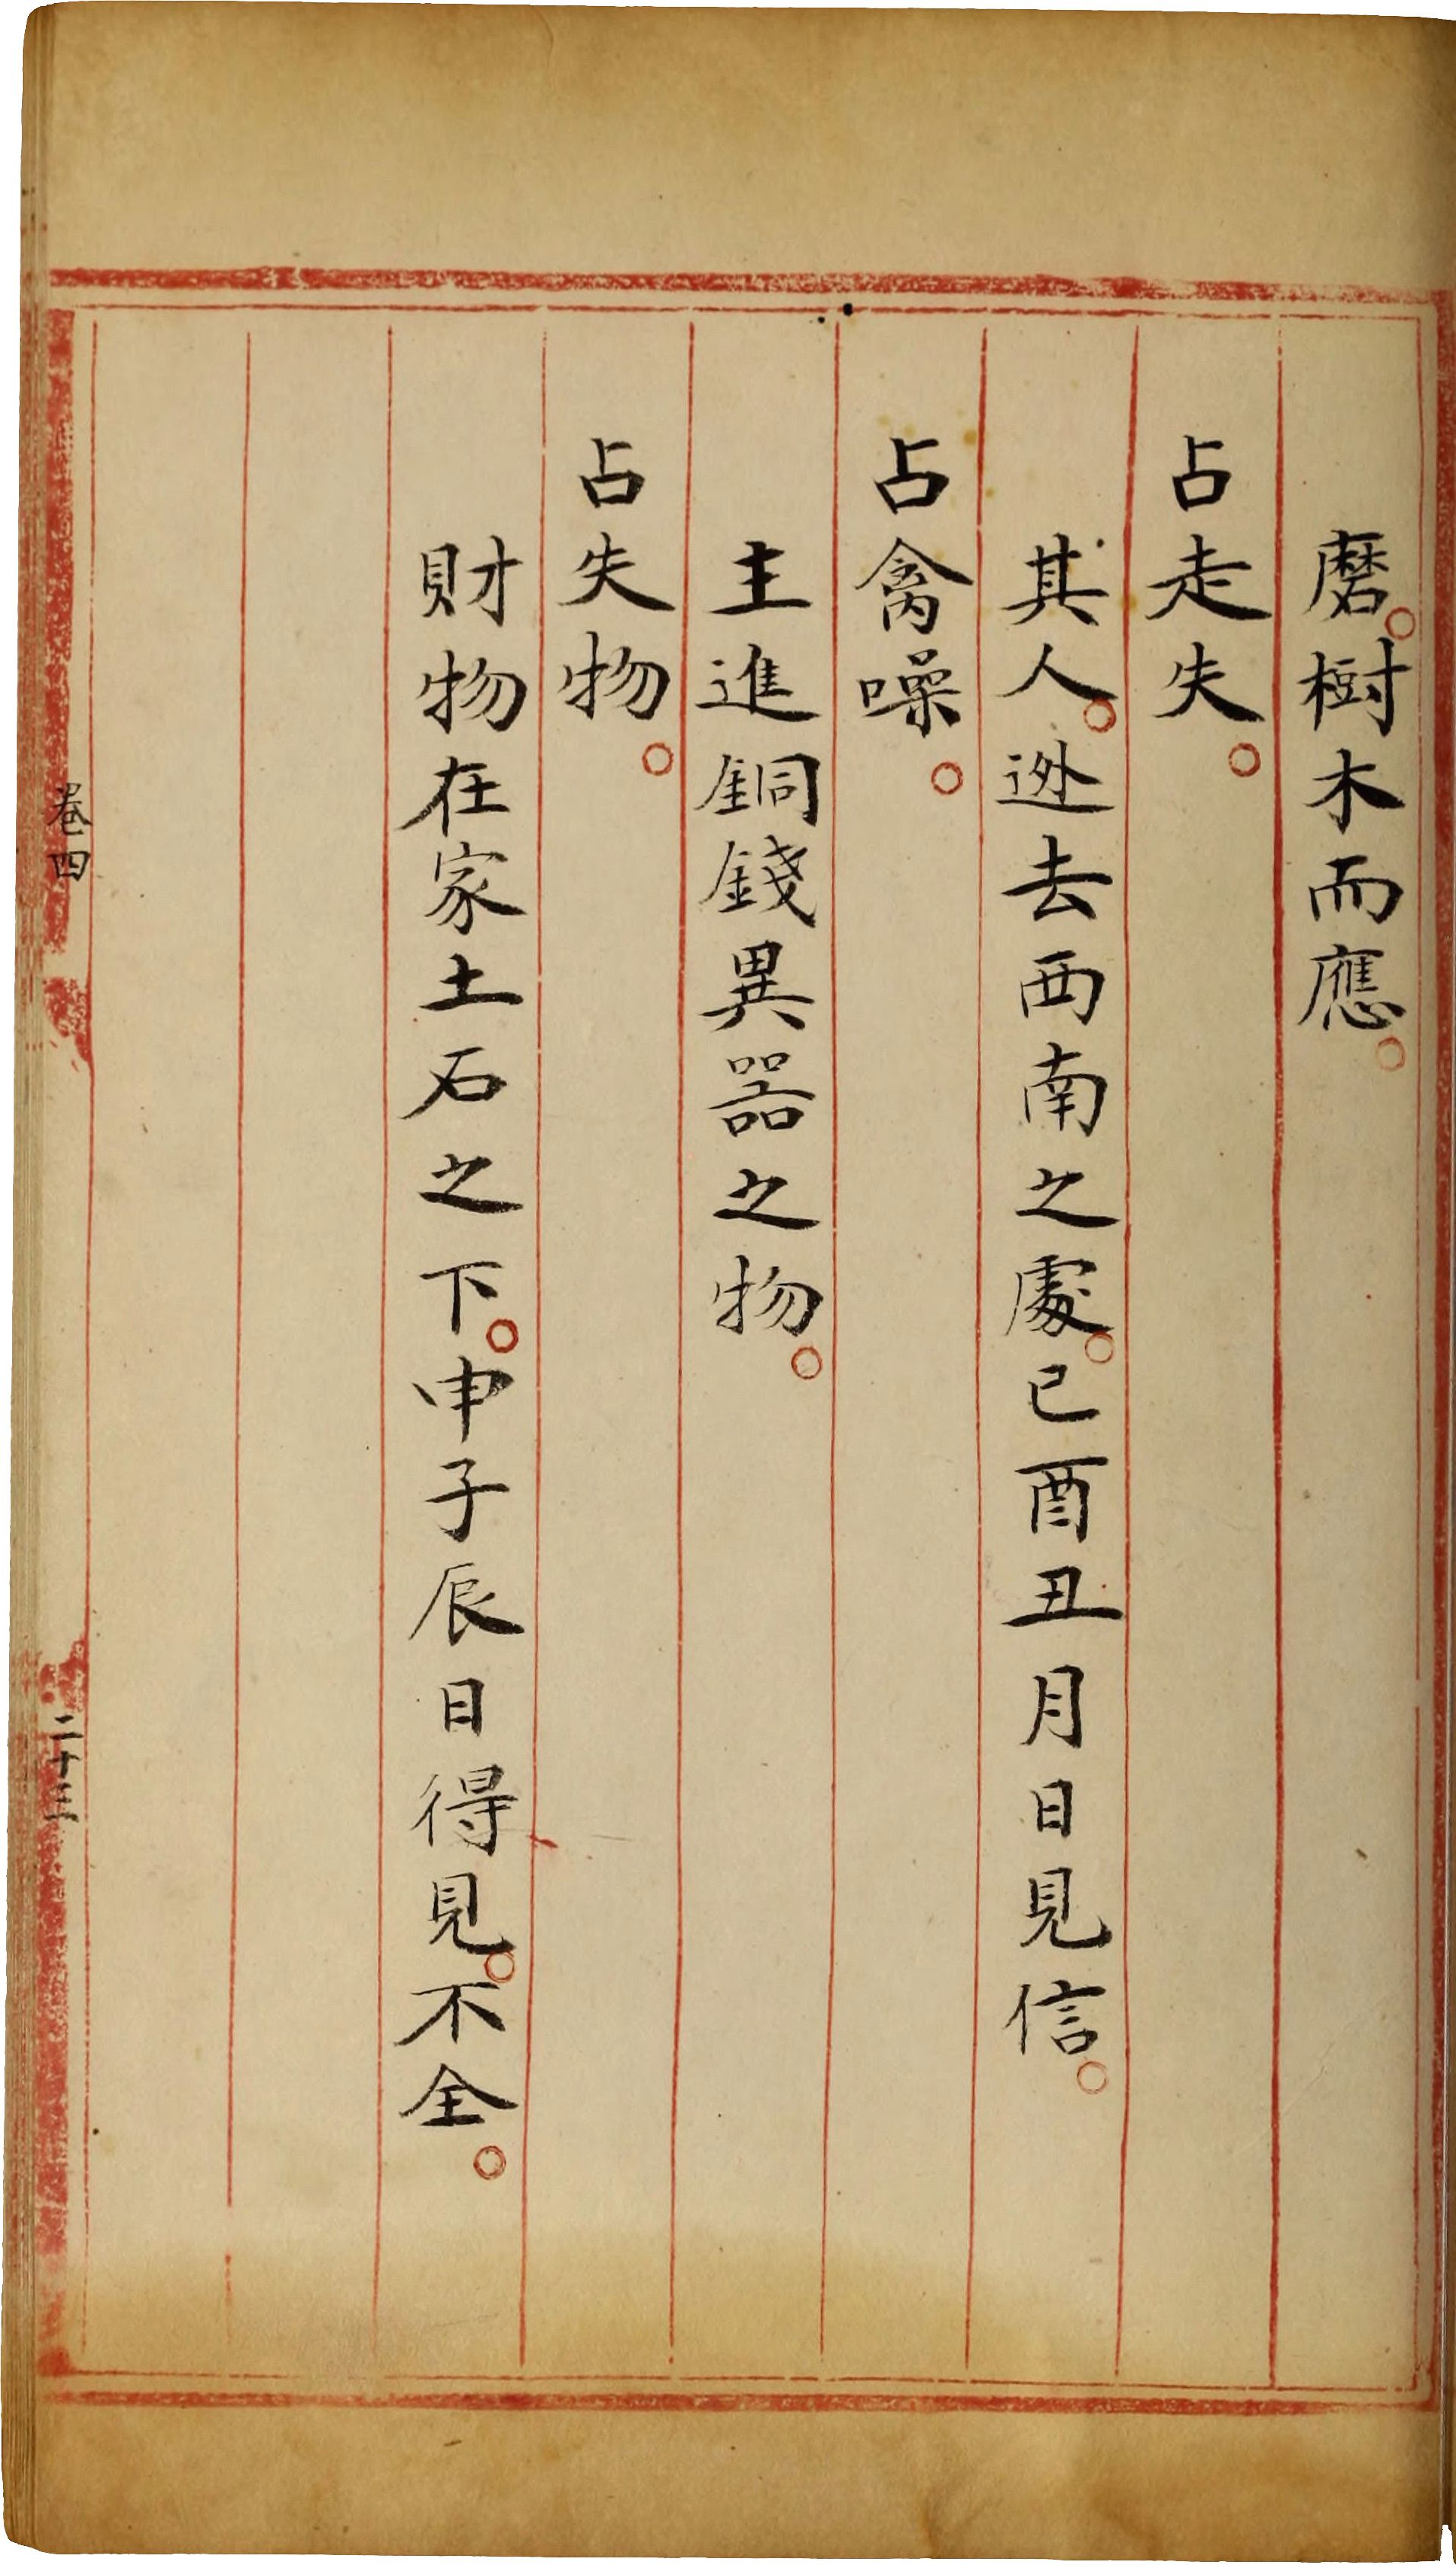 磨。樹木而應。
占走失。
其人。逃去西南之處。巳酉丑月日見信。
占禽噪。
主進銅錢異器之物。
占失物。
財物在家土石之下。申子辰日得見。不全。
卷四
二十三